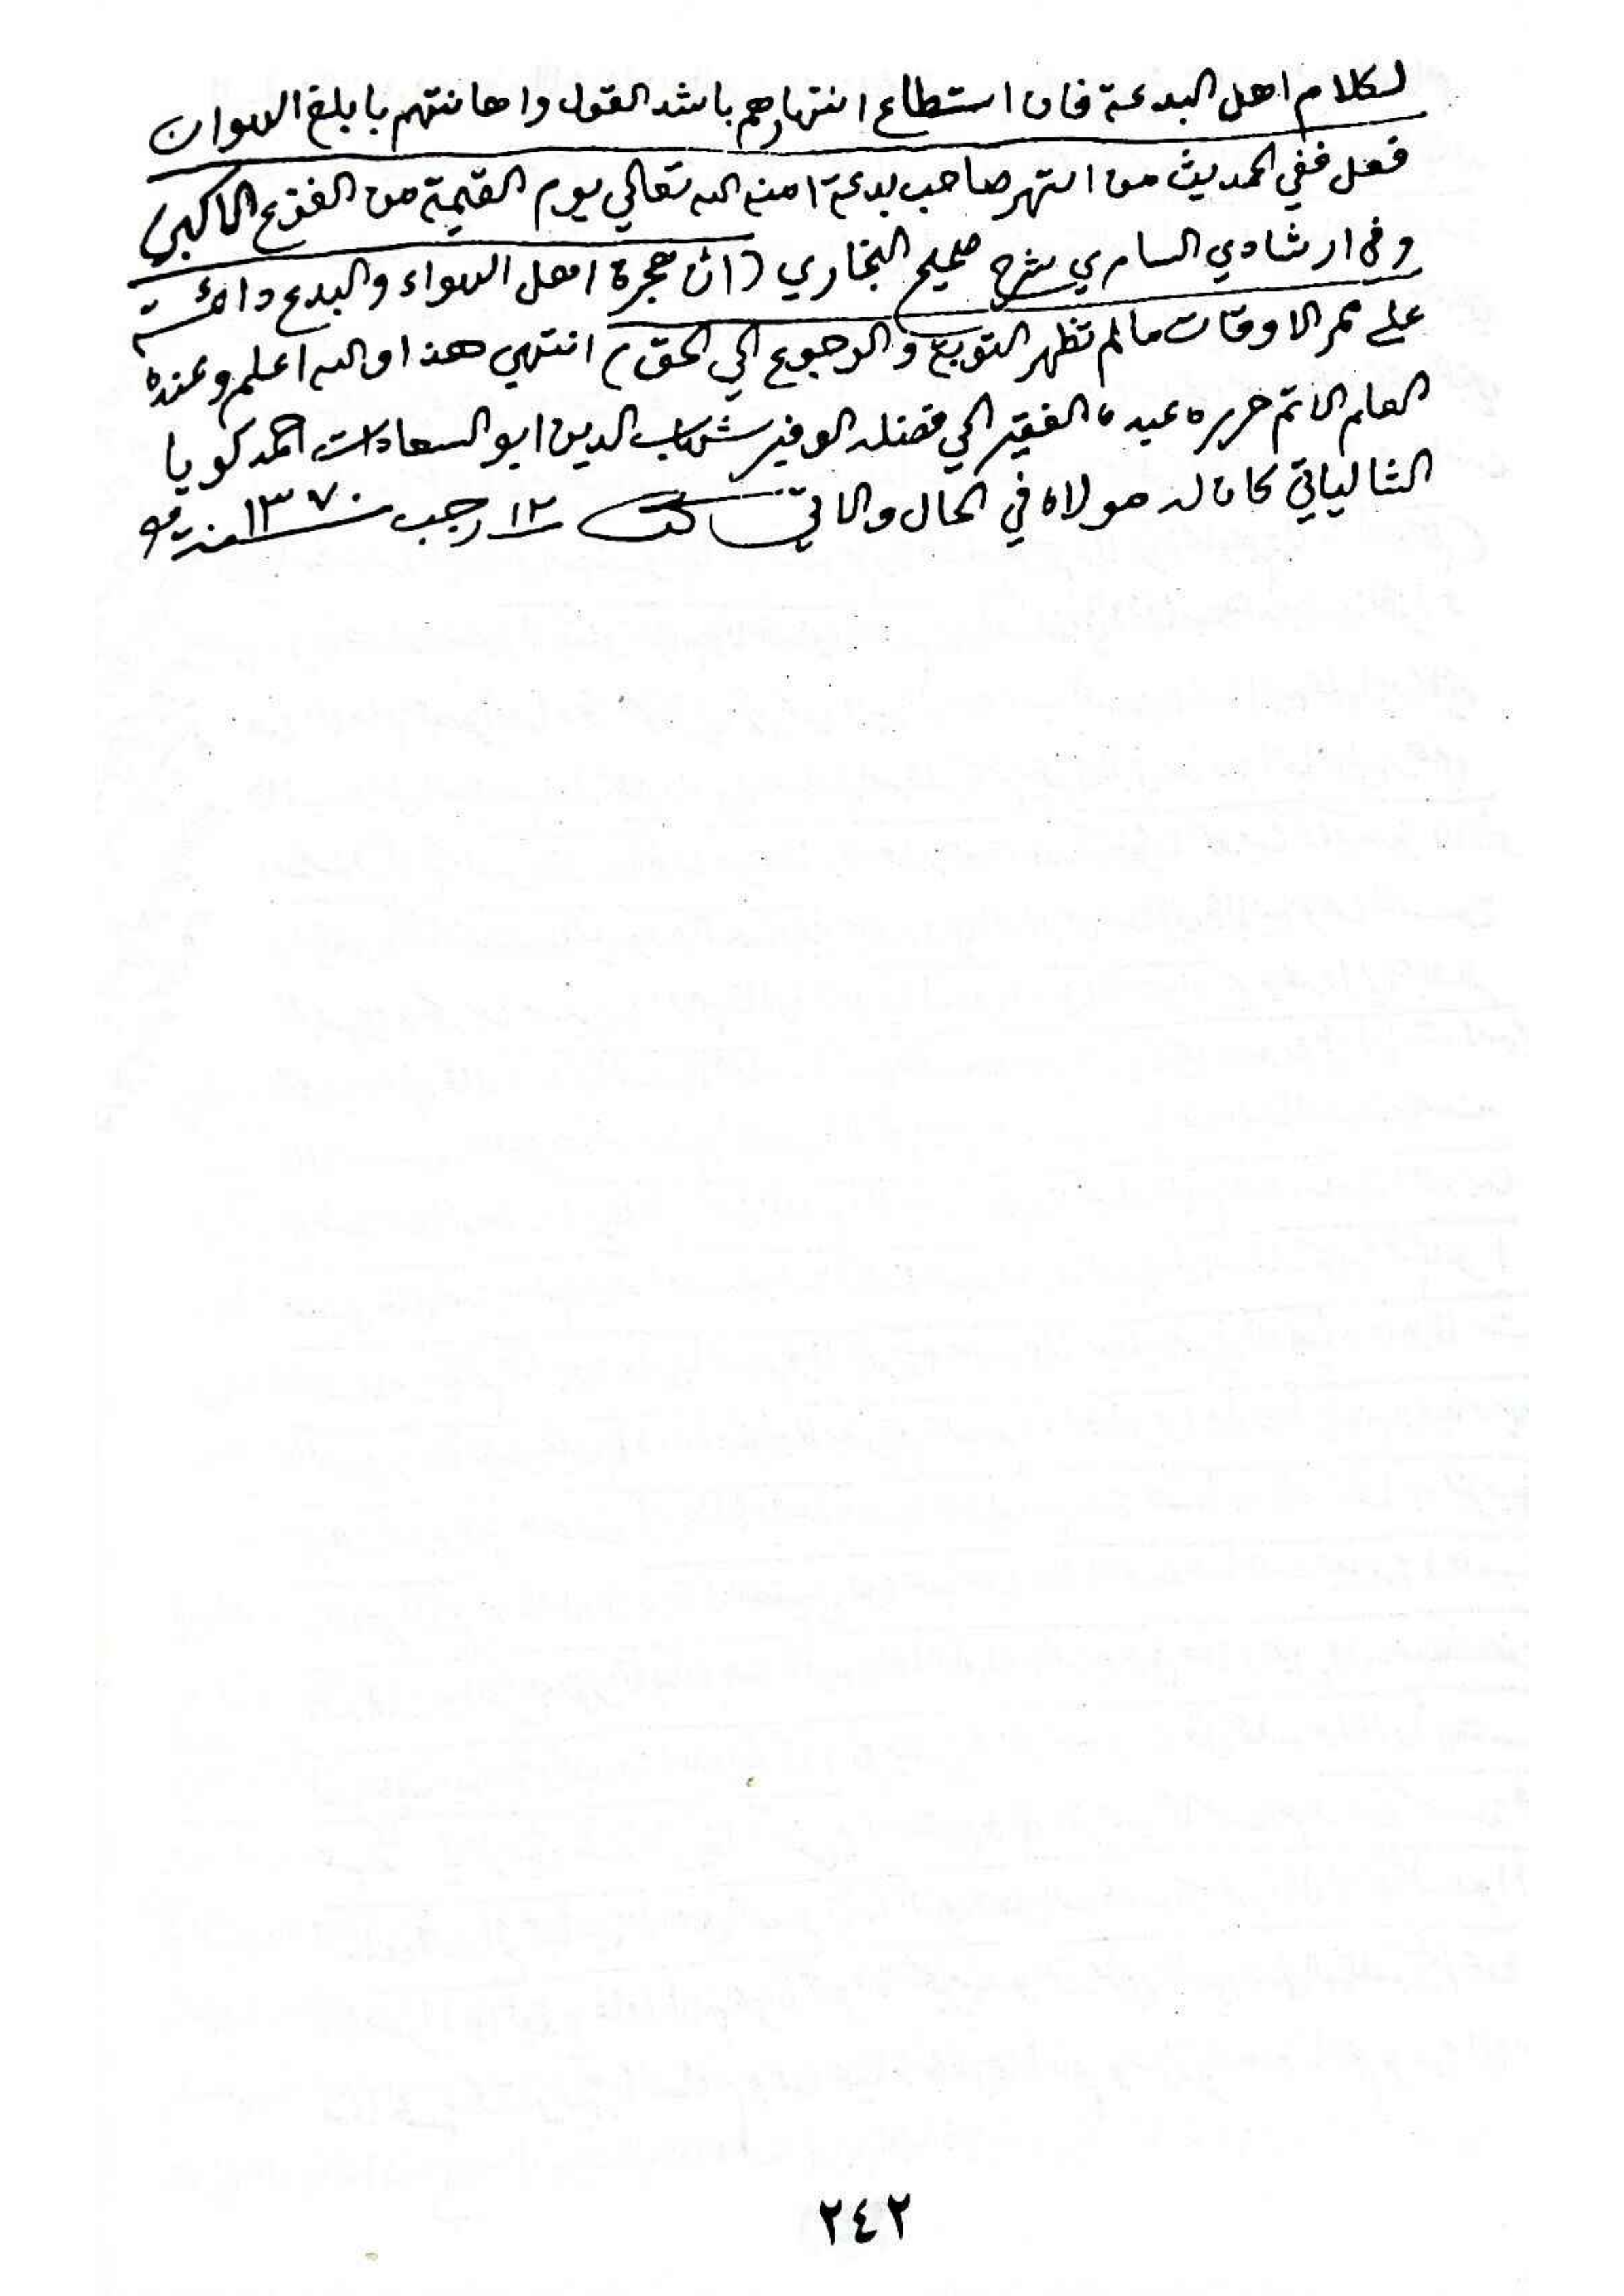 لكلام اهل البدعة فان استطاع انتهارهم باشد القول واهانتهم بابلغ الهوان
فعل ففي الحديث من انتهر صاحب بدعة امنه الله تعالي يوم القيمة من الفزع الاكبر)
وفي ارشادي الساري شرح صحيح البخاري (ان هجرة اهل الهواء والبدع دائمة
علي ممر الاوقات ما لم تظهر التوبة والرجوع الي الحق) انتهي هذا والله اعلم وعنده
العلم الاتم حرره عبده الفقير الي فضله الوفير شهاب الدين ابو السعادات احمد كويا
الشالياتي كان له مولاه في الحال والاتي ١٢ رجب ١٣٧٠
٢٤٢